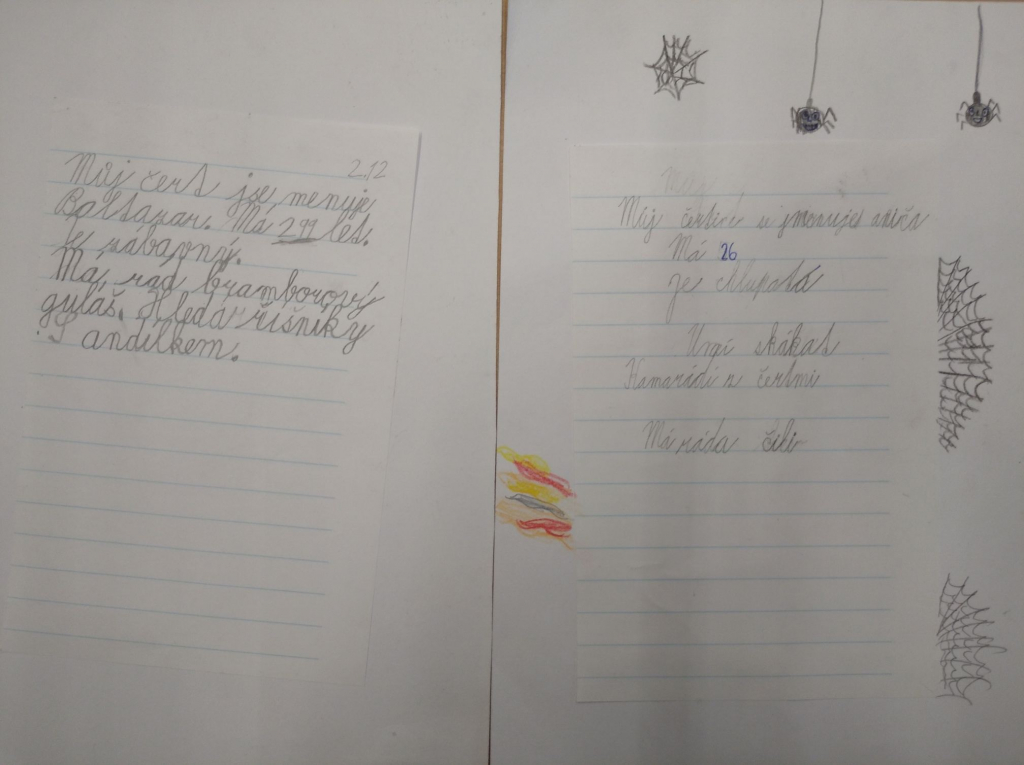 2.12
Můj čert jse menuje
Baltazar. Má 299 let.
Je zábavný.
Má, rád bramborový
guláš. Hledá hříšníky
S andílkem.
Můj
Můj čertice
Má 26
je chlupatá
Umí skákat
Kamarádí z čertmi
Má ráda čili